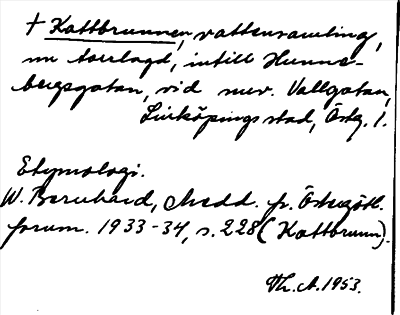 † Kattbrunnen, vattensamling,
nu torrlagd, intill Hunne-
bergsgatan, vid nuv. Vallgatan,
Linköpings stad, Östg. l.
Etymologi.
W. Bernhard, Medd. fr. Östergötl.
fornm. 1933-34, s. 228 (Kattbrunn).
Th. A. 1953.